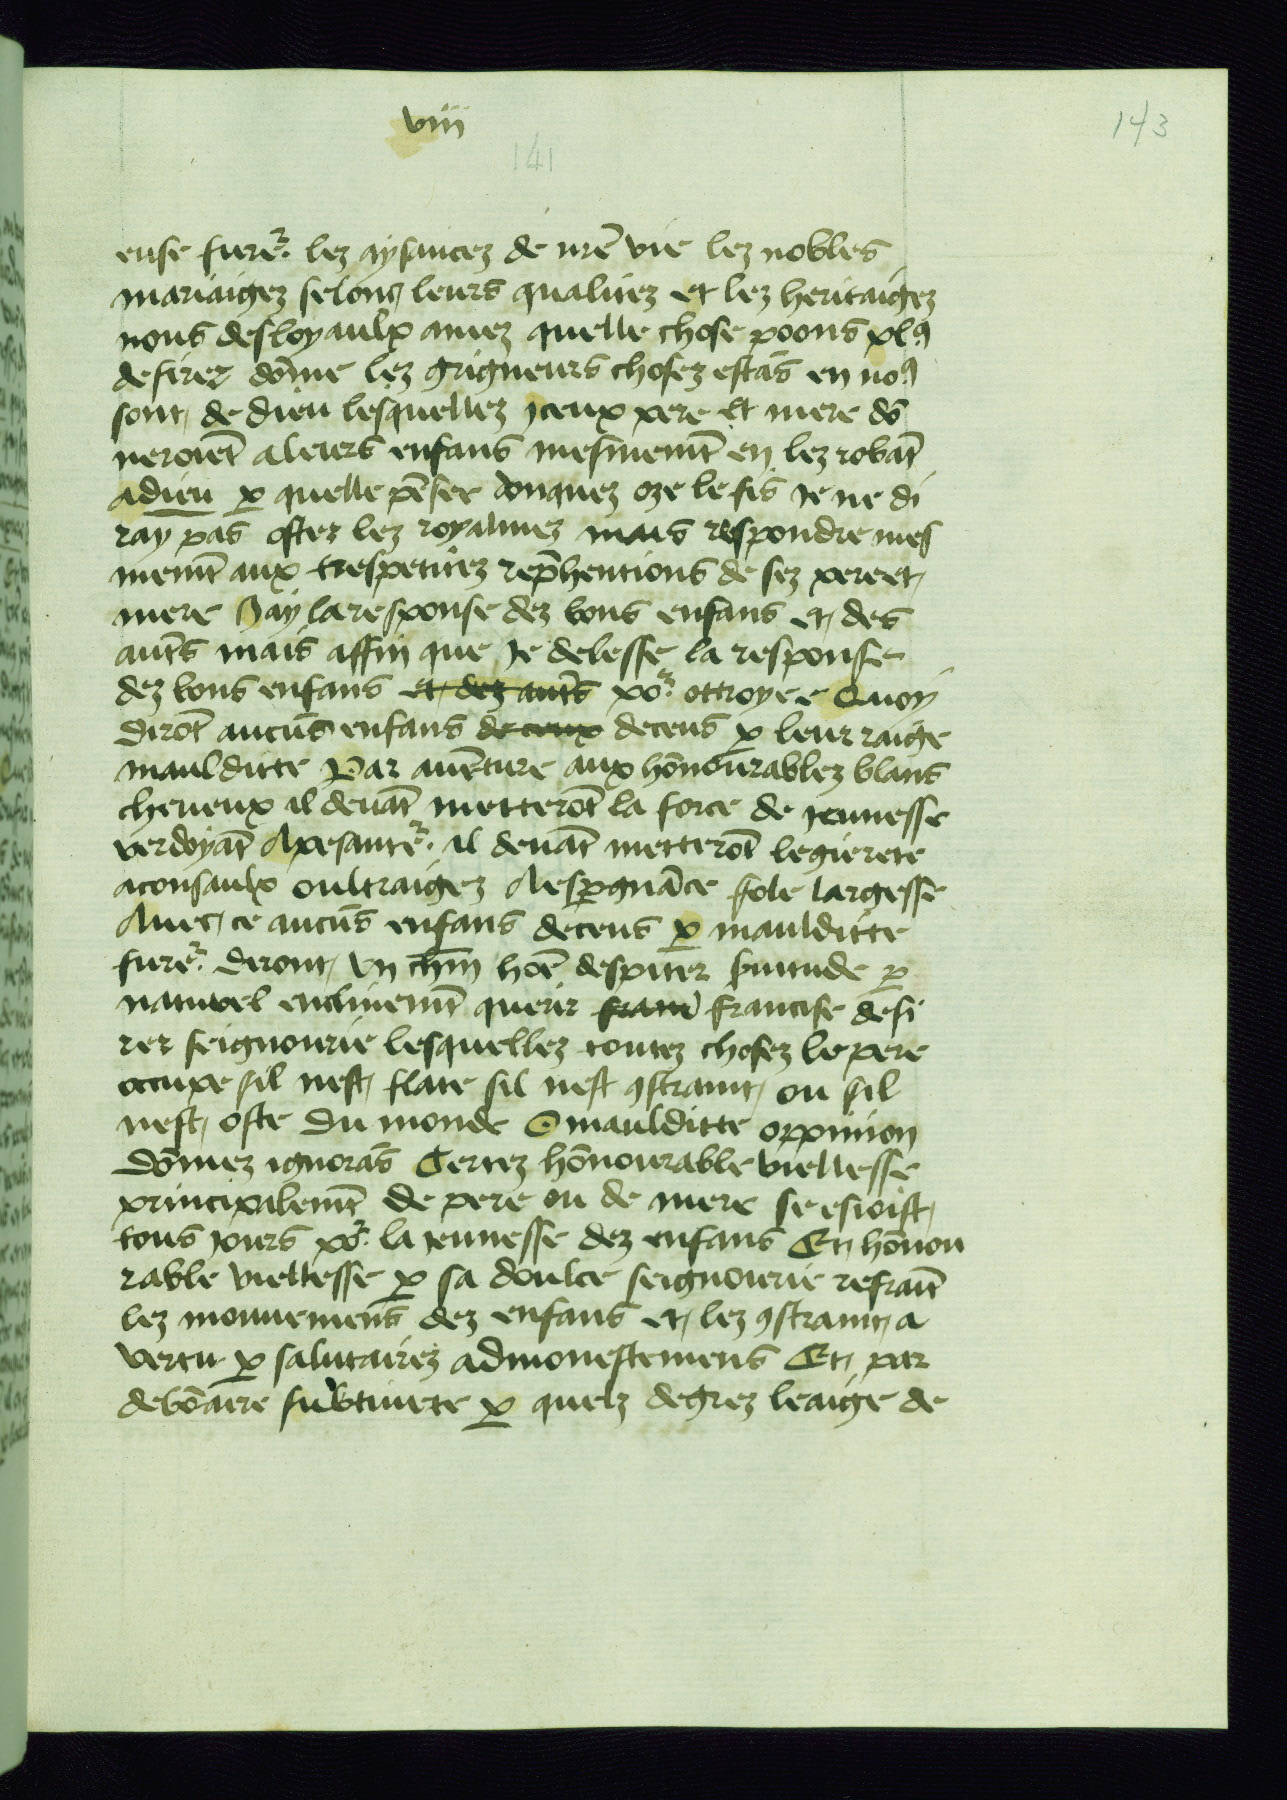 viii
143
141
euse fureᷣ lez aysancez de nr̄e vie lez nobles
mariaigez selonc leurs qualitez et lez heritaigez
nous desloyaulx amez quelle chose poons plꝰ
desirer dōme lez grigneurs chosez estās en noꝰ
sont de dieu lesquellez iceux pere et mere dō
neroiēt a leurs enfans mesmemt̄ en lez robāt
adieu ꝑ quelle pēsee donquez oze le fis Je ne di
ray pas oster lez royalmez mais respondre mes
memt̄ aux trespetitez rep̄hentions de sez pere et
mere Jay la response dez bons enfans et des
autr̄s mais affin que Je delesse la response
dez bons enfans et dez autr̄s poᷣ ottroyee Quoy
dirōt aucūs enfans de ceux deceus ꝑ leur raige
mauldicte Par auēture aux hōnourablez blans
cheueux il deuāt metterōt la force de jeunesse
verdoyāt A pesanteᷣ il deuāt metterōt legierete
a consaulx oultraigez A esꝑgnāce fole largesse
Auec ce aucūs enfans deceus ꝑ mauldicte
fureᷣ diront Vn chn̄ hōe despiter seruitude ꝑ
naturel enclinemt̄ querir franc francise desi
rer seignourie lesquellez toutez chosez le pere
occupe sil nest flate sil nest ꝯstraint ou sil
nest oste du monde O mauldicte oppinion
Dōmez ignorās Certez hōnourable viellesse
principalemt̄ de pere ou de mere se esioist
tous jours poᷣ la jeunesse dez enfans Et hōnou
rable viellesse ꝑ sa doulce seignourie refraīt
lez mouuemens dez enfans et lez ꝯstraint a
vertu ꝑ salutairez admonestemens Et par
debōaire subtiuete ꝑ quelz degrez leaige de